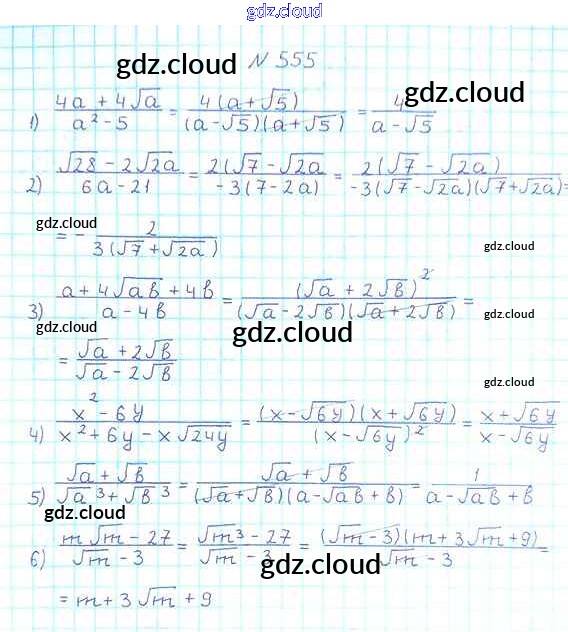 gdz.cloud
gdz.cloud N 555 gdz.cloud
1) (4a + 4√a)/(a² - 5) = (4(a + √5))/((a - √5)(a + √5)) = 4/(a - √5)
2) (√28 - 2√2a)/(6a - 21) = (2(√7 - √2a))/(-3(7 - 2a)) = (2(√7 - √2a))/(-3(√7 - √2a)(√7 + √2a)) =
gdz.cloud
= - 2/(3(√7 + √2a)) gdz.cloud
3) (a + 4√ab + 4b)/(a - 4b) = ((√a + 2√b)²)/((√a - 2√b)(√a + 2√b)) =
gdz.cloud gdz.cloud gdz.cloud
= (√a + 2√b)/(√a - 2√b)
gdz.cloud
4) (x² - 6y)/(x² + 6y - x√24y) = ((x - √6y)(x + √6y))/((x - √6y)²) = (x + √6y)/(x - √6y)
5) (√a + √b)/(√a³ + √b³) = (√a + √b)/((√a + √b)(a - √ab + b)) = 1/(a - √ab + b)
gdz.cloud
6) (m√m - 27)/(√m - 3) = (√m³ - 27)/(√m - 3) = ((√m - 3)(m + 3√m + 9))/(√m - 3) =
gdz.cloud
= m + 3√m + 9